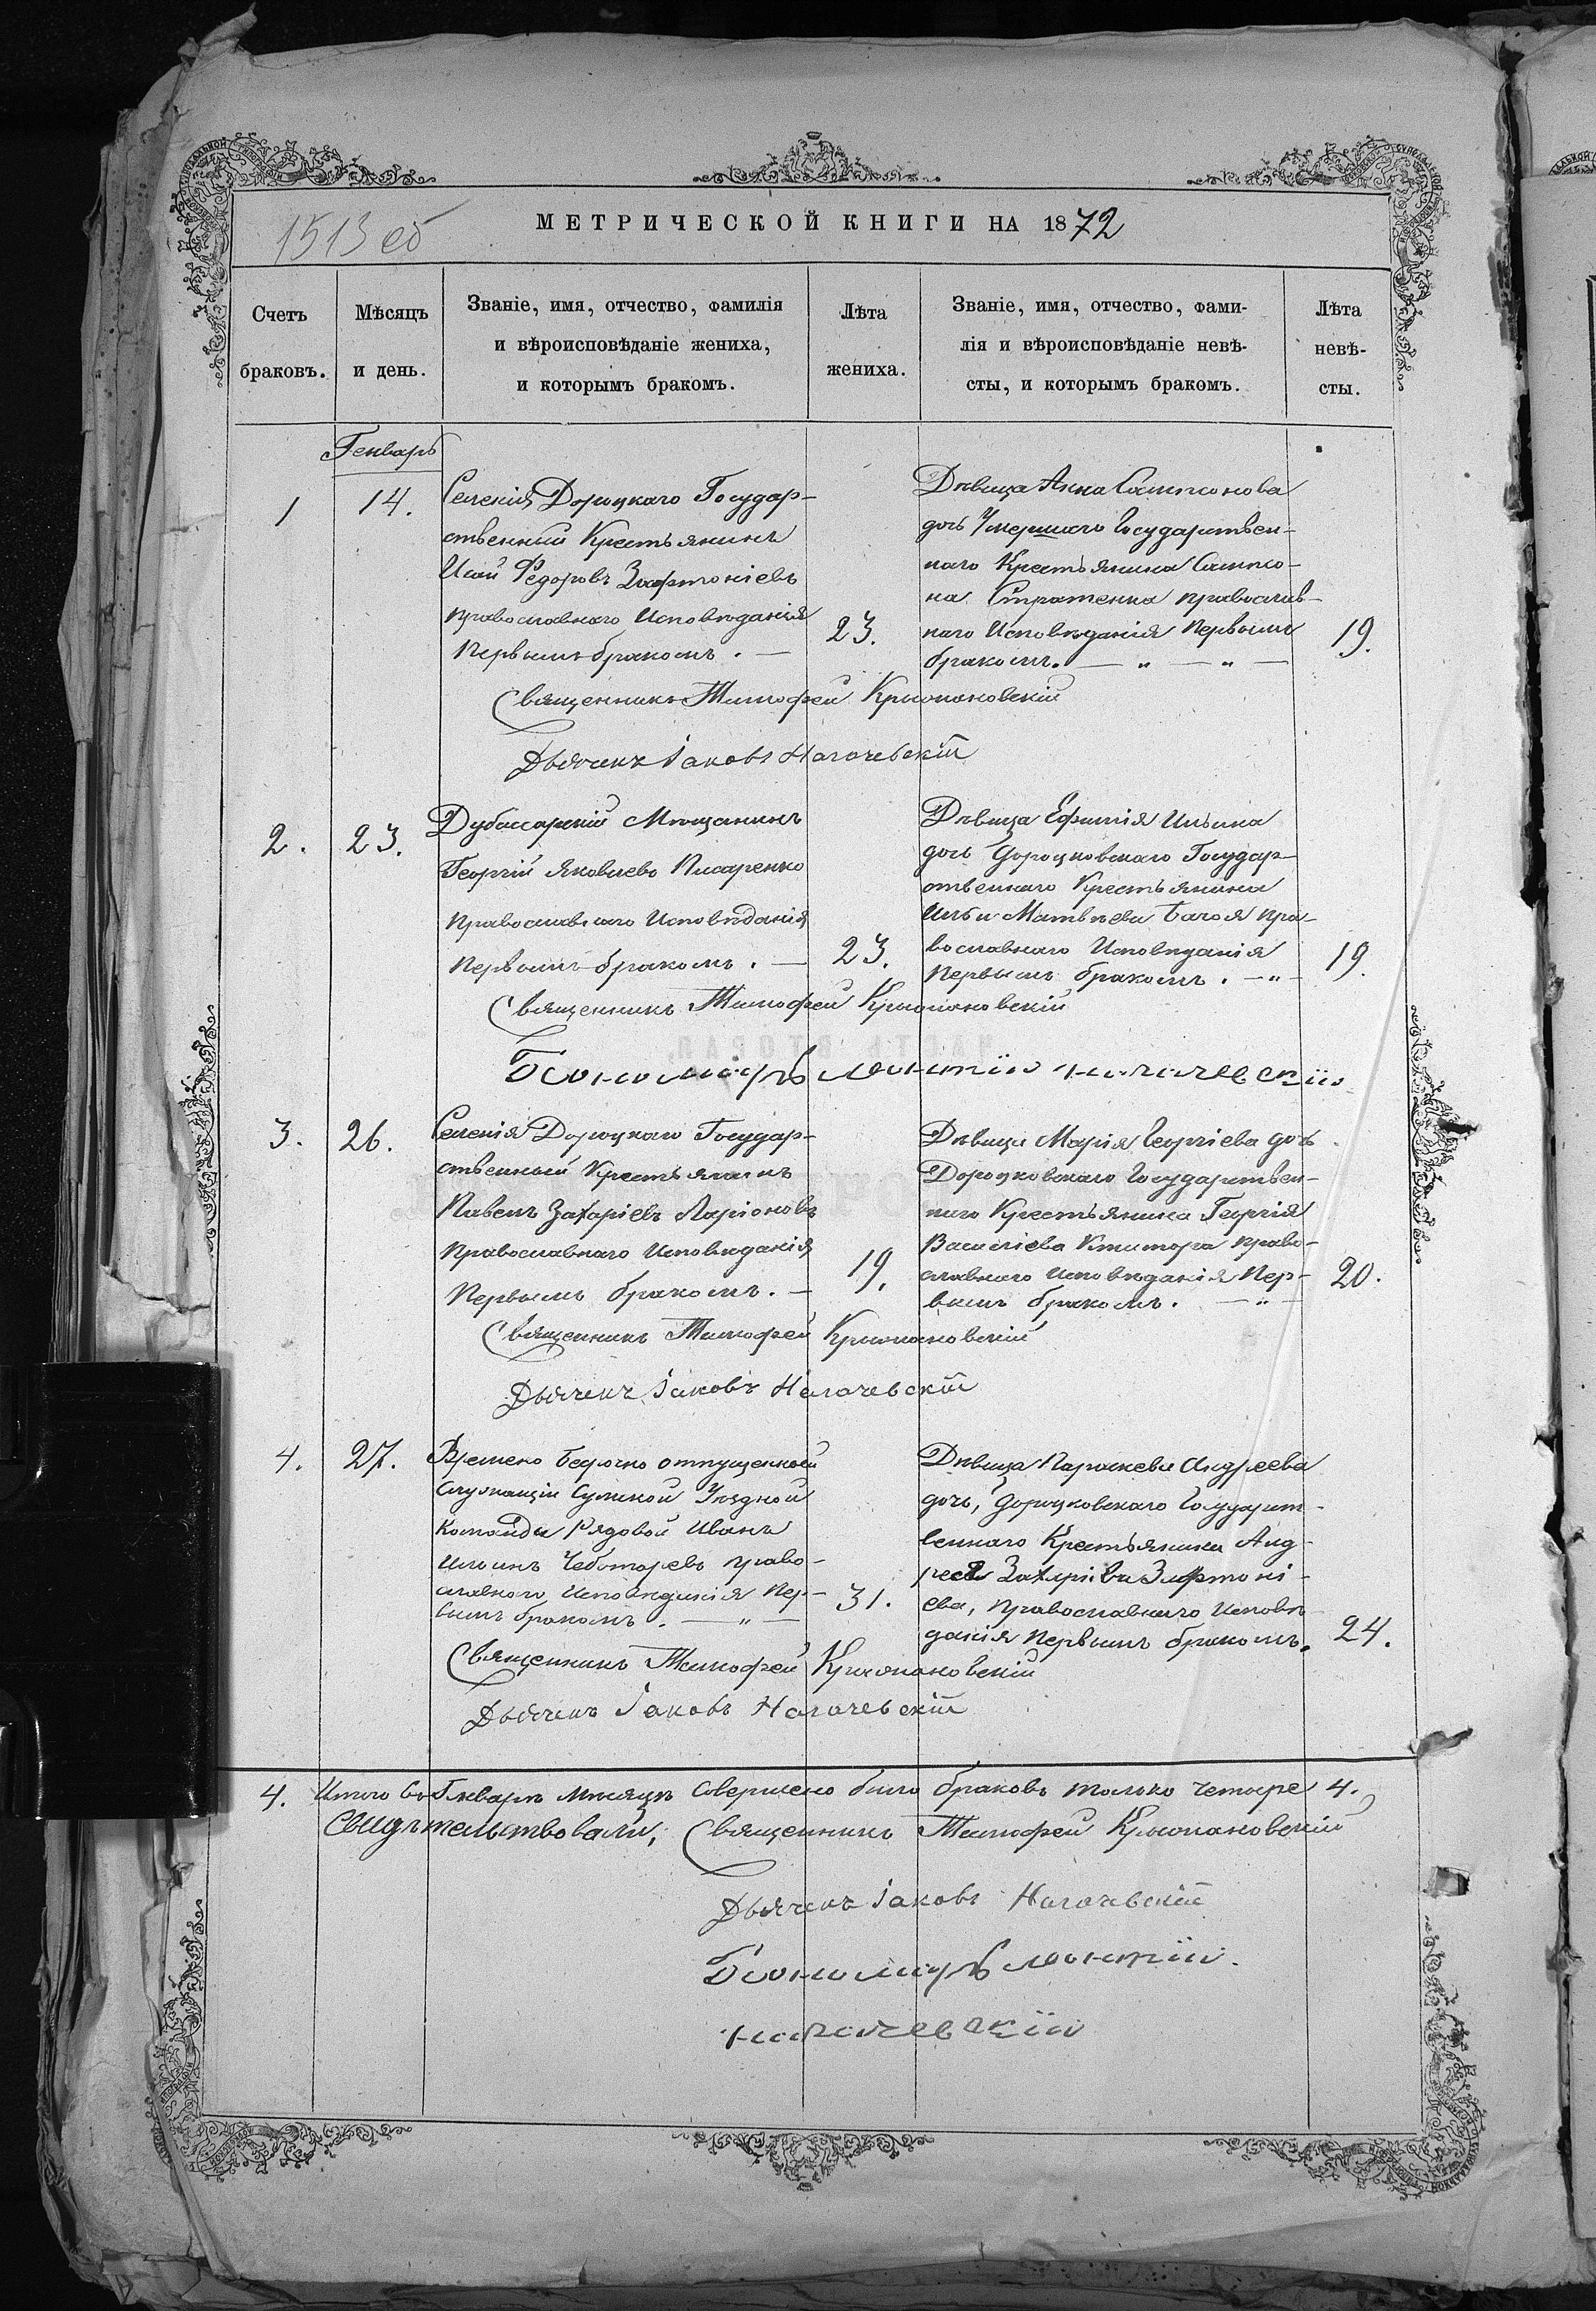 1513 об
МЕТРИЧЕСКОЙ КНИГИ НА 1872
Счетъ браковъ.
Мѣсяцъ и день.
Званіе, имя, отчество, фамилія
и вѣроисповѣданіе жениха,
и которымъ бракомъ.
Лѣта жениха.
Званіе, имя, отчество, фами-
лія и вѣроисповѣданіе невѣ-
сты, и которымъ бракомъ.
Лѣта невѣ-
сты.
Генварь
1
14.
Селенія Дороцкаго Государ-
ственный Крестьянинъ
Исай Ѳедоровъ Зафтоніевъ
православнаго Исповѣданія
Первымъ бракомъ. —
23.
Дѣвица Анна Сампсонова
дочь Умершаго Государствен-
наго Крестьянина Сампсо-
на православ-
наго Исповѣданія Первымъ
бракомъ. — „ — „ —
19.
Священникъ Тимофей Крыжановскій
Дьячекъ Іаковъ Нагачевскій
2.
23.
Дубассарскій Мѣщанинъ
Георгій Яковлевъ Писаренко
Православнаго Исповѣданія
Первымъ бракомъ. —
23.
Дѣвица Ефимія Ильина
дочь Дороцковскаго Государ-
ственнаго Крестьянина
Ильи Матвѣева Пра-
вославнаго Исповѣданія
Первымъ бракомъ. — „ —
19.
Священникъ Тимофей Крыжановскій
Пономарь Леонтій Нагачевскій
3.
26.
Селенія Дороцкаго Государ-
ственный Крестьянинъ
Павелъ Захаріевъ Ларіоновъ
Православнаго Исповѣданія
Первымъ бракомъ. —
19.
Дѣвица Марія Георгіева дочь
Дороцковскаго Государствен-
наго Крестьянина Георгія
Василіева Ктитора Право-
славнаго Исповѣданія Пер-
вымъ бракомъ. — „ —
20.
Священникъ Тимофей Крыжановскій
Дьячекъ Іаковъ Нагачевскій
4.
27.
Времено безсрочно отпущенной
Уѣздной
Команды Рядовой Иванъ
Ильинъ Чеботаревъ право-
славного Исповѣданія Пер-
вымъ бракомъ. — „ —
31.
Дѣвица Параскева Андреева
дочь, Дороцковскаго Государст-
веннаго Крестьянина Анд-
рея Захаріева Зафтоні-
ева, Православнаго Исповѣ-
данія Первымъ бракомъ.
24.
Священникъ Тимофей Крыжановскій
Дьячекъ Іаковъ Нагачевскій
4. Итого въ Генварѣ мѣсяцѣ Совершено было браковъ только четыре 4.
Свидѣтельствовали; Священникъ Тимофей Крыжановскій
Дьячекъ Іаковъ Нагачевскій
Пономарь Леонтій
Нагачевскій